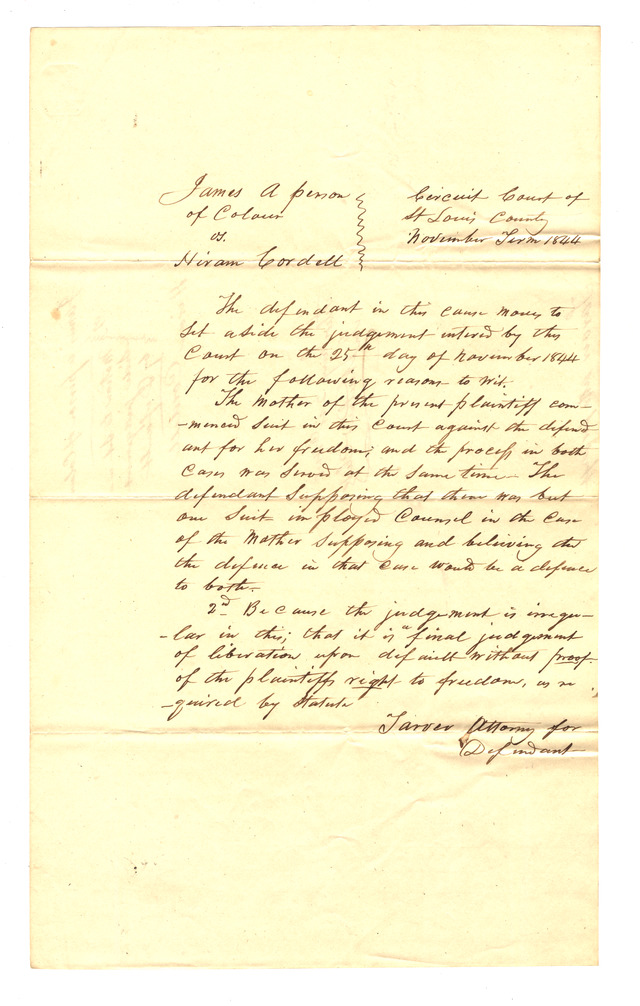 James A person
of Colour
vs.
Hiram Cordell
Circuit Court of
St Louis County
November Term 1844
The defendant in this cause moves to
set aside the judgement intered by this
Court on the 25th day of November 1844
for the following reasons to wit.
The Mother of the present plaintiff com-
-menced suit in this Court against the defend
ant for her freedom; and the process in both
cases was served at the same time - The
defendant supposing that there was but
one suit imployed Counsel in the case
of the Mother supposing and believing that
the defence in that case would be a defence
to both.
2nd Because the judgement is irregu-
-lar in this; that it is a final judgement
of liberation upon default without proof
of the plaintiffs right to freedom, as re
-quired by Statute
Tarver Attorny for
Defendant